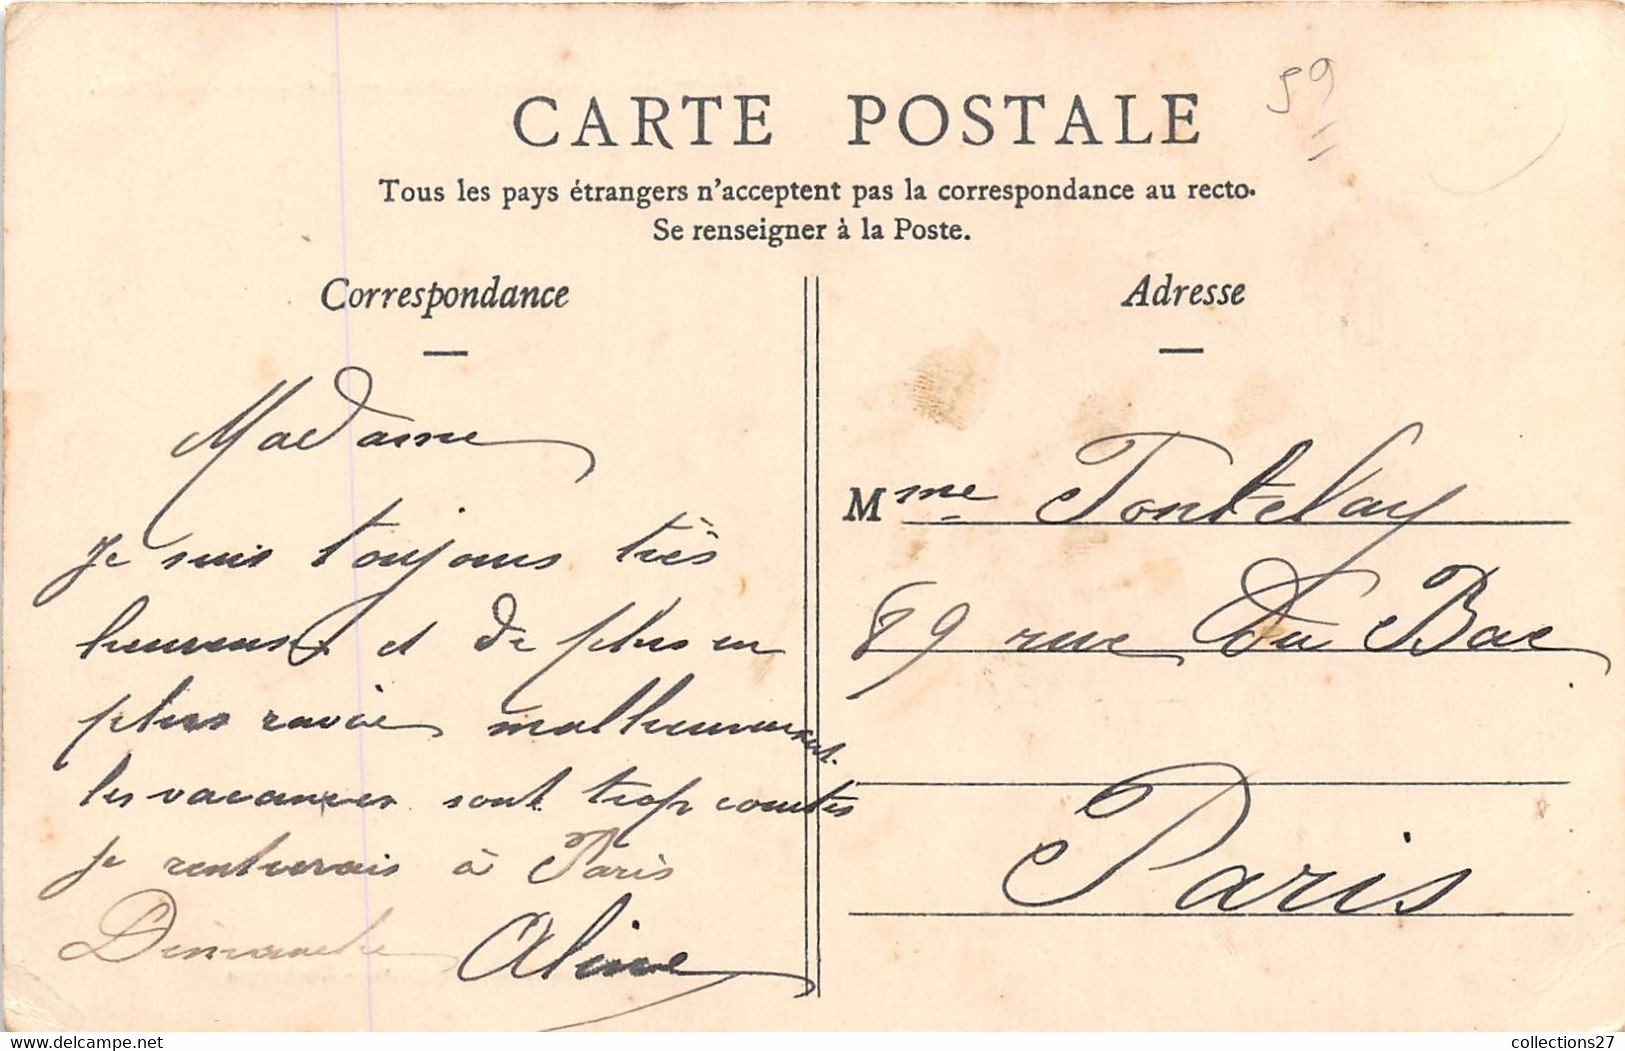 59
CARTE POSTALE
Tous les pays étrangers n'acceptent pas la correspondance au recto.
Se renseigner à la Poste.
Correspondance
Madame
Je suis toujours très
heureuse et de plus en
plus ravie malheureusement.
les vacances sont trop courtes
je rentrerais à Paris
Dimanche Aline
Adresse
Mme Tontelay
89 rue Du Bac
Paris
collections27